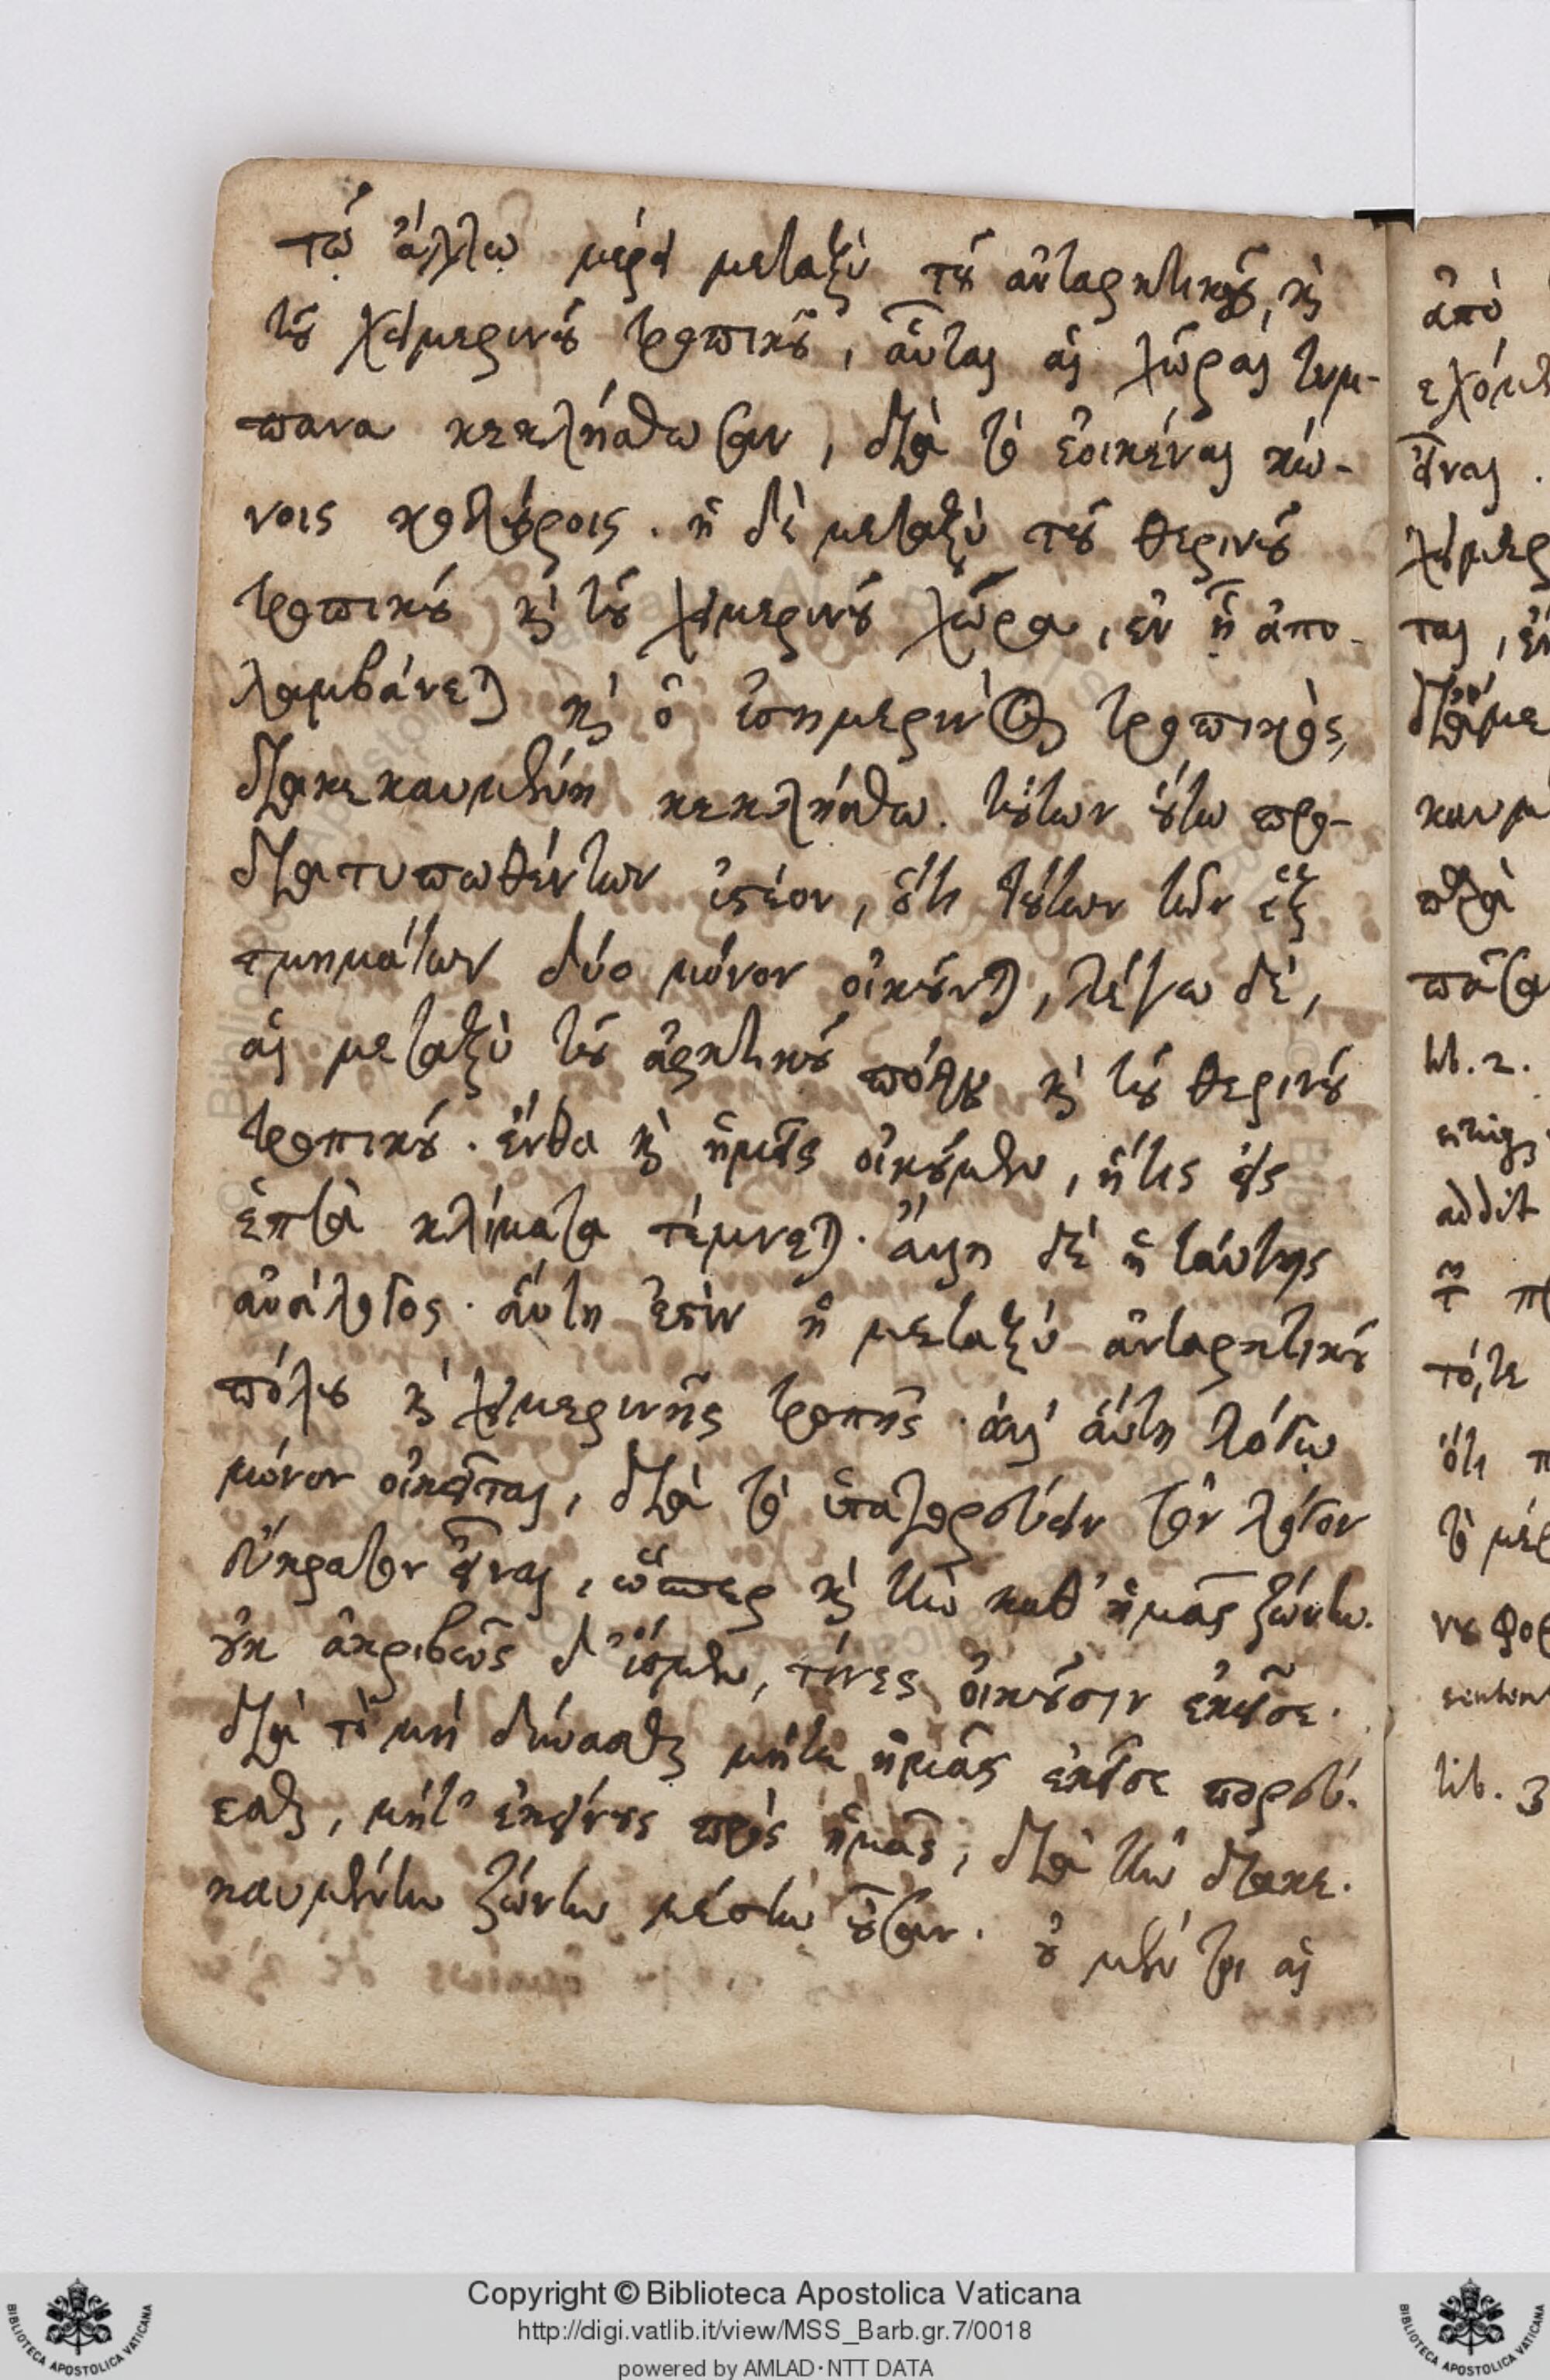 τῷ ἄλλῳ μέρει μεταξὺ τοῦ ἀνταρκτικοῦ, καὶ
τοῦ χειμερινοῦ τροπικοῦ, αὗται αἱ χῶραι τυμ-
πανα κεκλήσθωσαν, διὰ τὸ ἐοικέναι κώ-
νοις κολούροις. ἡ δὲ μεταξὺ τοῦ θερινοῦ
τροπικοῦ καὶ τοῦ χειμερινοῦ χῶρα, ἐν ᾗ ἀπο-
λαμβάνεται καὶ ὁ ἰσημερινὸς τροπικὸς,
διακεκαυμένη κεκλήσθω. τούτων οὕτω προ-
διατυπωθέντων ἰστέον, ὅτι τούτων τῶν ἓξ
τμημάτων δύο μόνον οἰκοῦνται, λέγω δὲ,
αἱ μεταξὺ τοῦ ἀρκτικοῦ πόλου καὶ τοῦ θερινοῦ
τροπικοῦ. ἔνθα καὶ ἡμεῖς οἰκοῦμεν, ἥτις εἰς
ἑπτὰ κλίματα τέμνεται. ἄλλη δὲ ἡ ταύτης
ἀνάλογος. αὕτη ἐστὶν ἡ μεταξὺ ἀνταρκτικοῦ
πόλου καὶ χειμερινῆς τροπῆς. ἀλλ' αὕτη λόγῳ
μόνον οἰκεῖται, διὰ τὸ ὑπαγορεύειν τὸν λόγον
εὔκρατον εἶναι, ὥσπερ καὶ τὴν καθ' ἡμᾶς ζώνην.
οὐκ ἀκριβῶς δ' ἴσμεν, τίνες οἰκοῦσιν ἐκεῖσε.
διὰ τὸ μὴ δύνασθαι μήτε ἡμᾶς ἐκεῖσε πορεύ-
εσθαι, μήτ' ἐκείνους πρὸς ἡμᾶς, διὰ τὴν διακε-
καυμένην ζώνην μέσην οὖσαν. οὐ μέντοι αἱ
ἀπὸ
εχόμε
εἶναι.
χειμερ
ται, ἐν
διαμε
καυμ
πλὰ
πᾶσα
lib. 2.
addit
τότε
ὅτι π
τὸ μέρ
νυ φορ
lib. 3
Copyright © Biblioteca Apostolica Vaticana
http://digi.vatlib.it/view/MSS_Barb.gr.7/0018
powered by AMLAD·NTT DATA
BIBLIOTECA APOSTOLICA VATICANA
BIBLIOTECA APOSTOLICA VATICANA